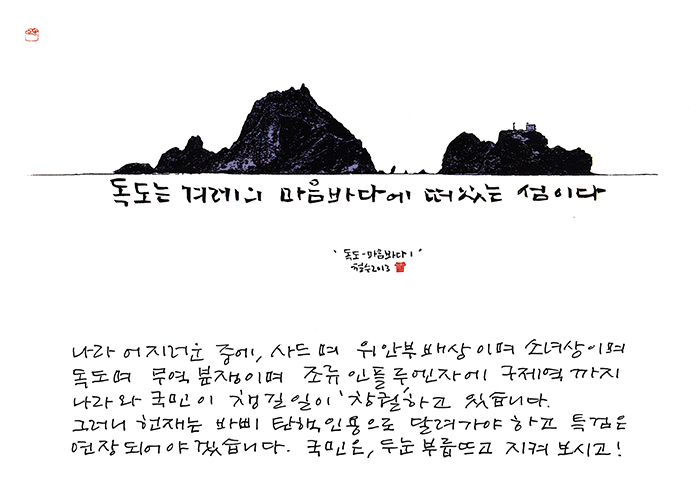 독도는 겨레의 마음바다에 떠있는 섬이다
'독도-마음바다1'
철수2013
나라 어지러운 중에, 사드며 위안부 배상이며 소녀상이며
독도며 무역 분쟁이며 조류인플루엔자에 구제역까지
나라와 국민이 챙길일이 창궐하고 있습니다.
그러니 헌재는 바삐 탄핵인용으로 달려가야 하고 특검은
연장되어야겠습니다. 국민은, 두눈 부릅뜨고 지켜 보시고!